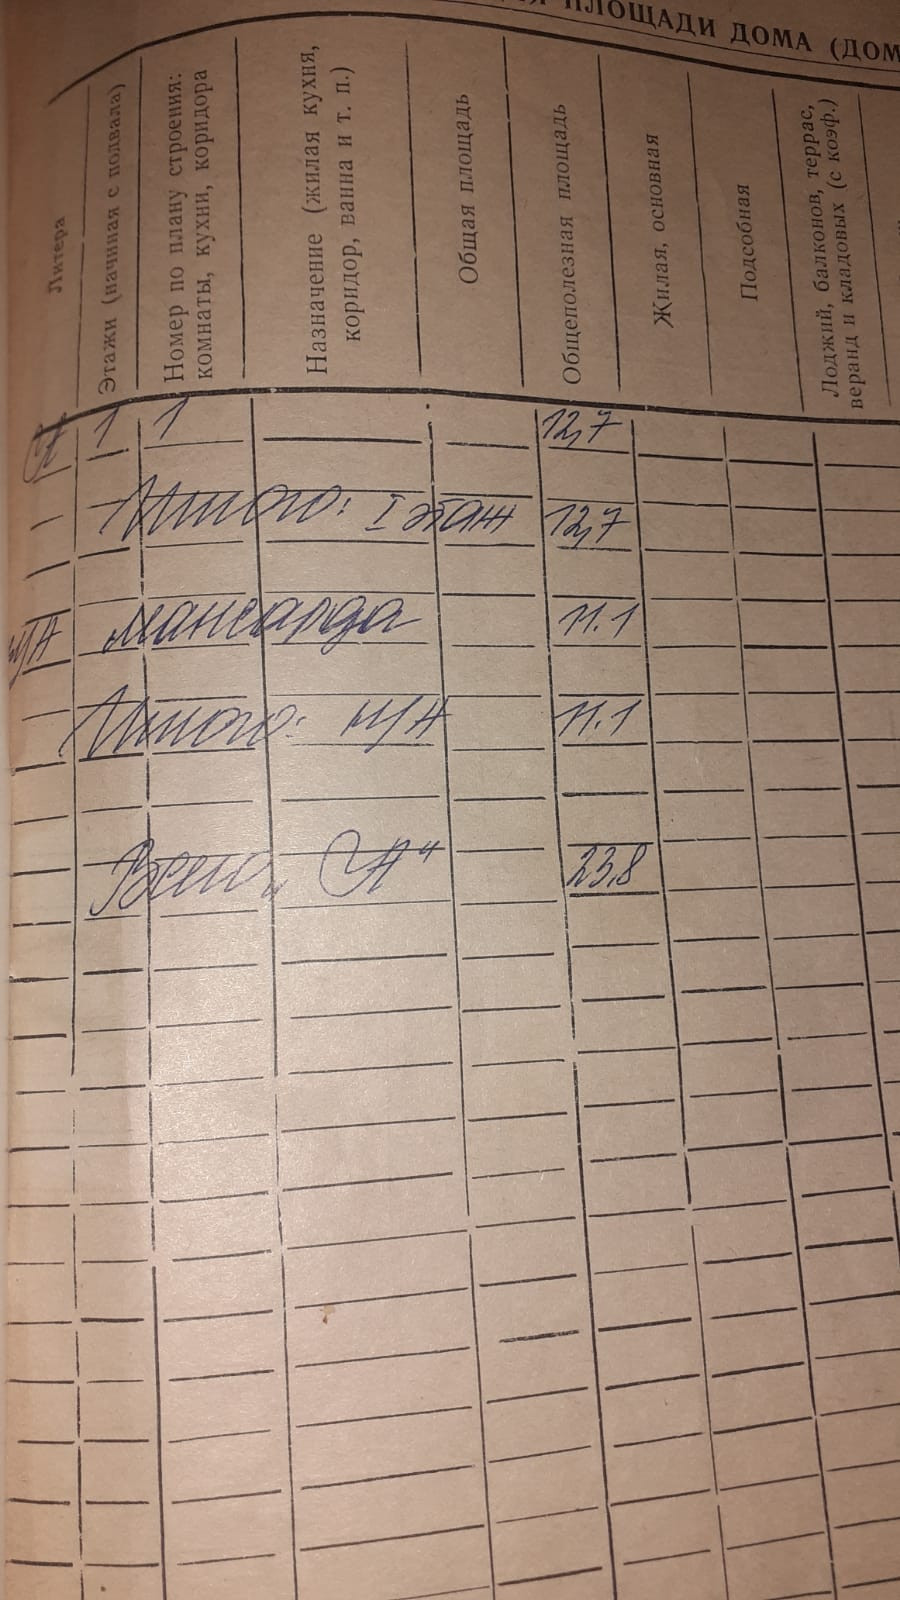 ПЛОЩАДИ ДОМА (ДОМ
Литера
Этажи (начиная с подвала)
Номер по плану строения:
комнаты, кухни, коридора
Назначение (жилая кухня,
коридор, ванна и т. п.)
Общая площадь
Общеполезная площадь
Жилая, основная
Подсобная
Лоджий, балконов, террас,
веранд и кладовых (с коэф.)
1 1 12,7
Итого: I этаж 12,7
м/А мансарда 11.1
Итого: м/А 11.1
Всего „А“ 23,8